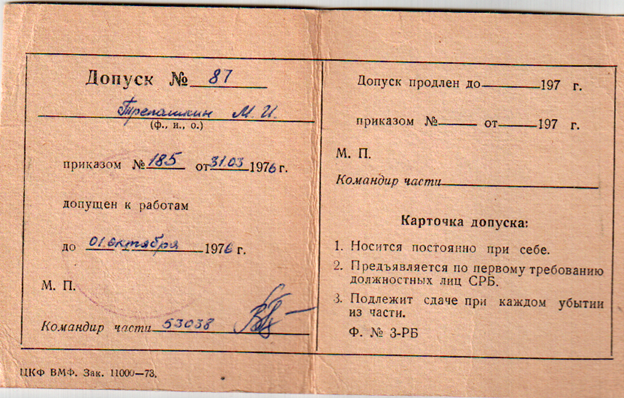 Допуск № 87
Трепашкин М.И.
(ф., и., о.)
приказом № 185 от 31.03 1976 г.
допущен к работам
до 01 октября 1976 г.
М. П.
Командир части 53038
ЦКФ ВМФ. Зак. 11000—73.
Допуск продлен до 197 г.
приказом № от 197 г.
М. П.
Командир части
Карточка допуска:
1. Носится постоянно при себе.
2. Предъявляется по первому требованию
должностных лиц СРБ.
3. Подлежит сдаче при каждом убытии
из части.
Ф. № 3-РБ